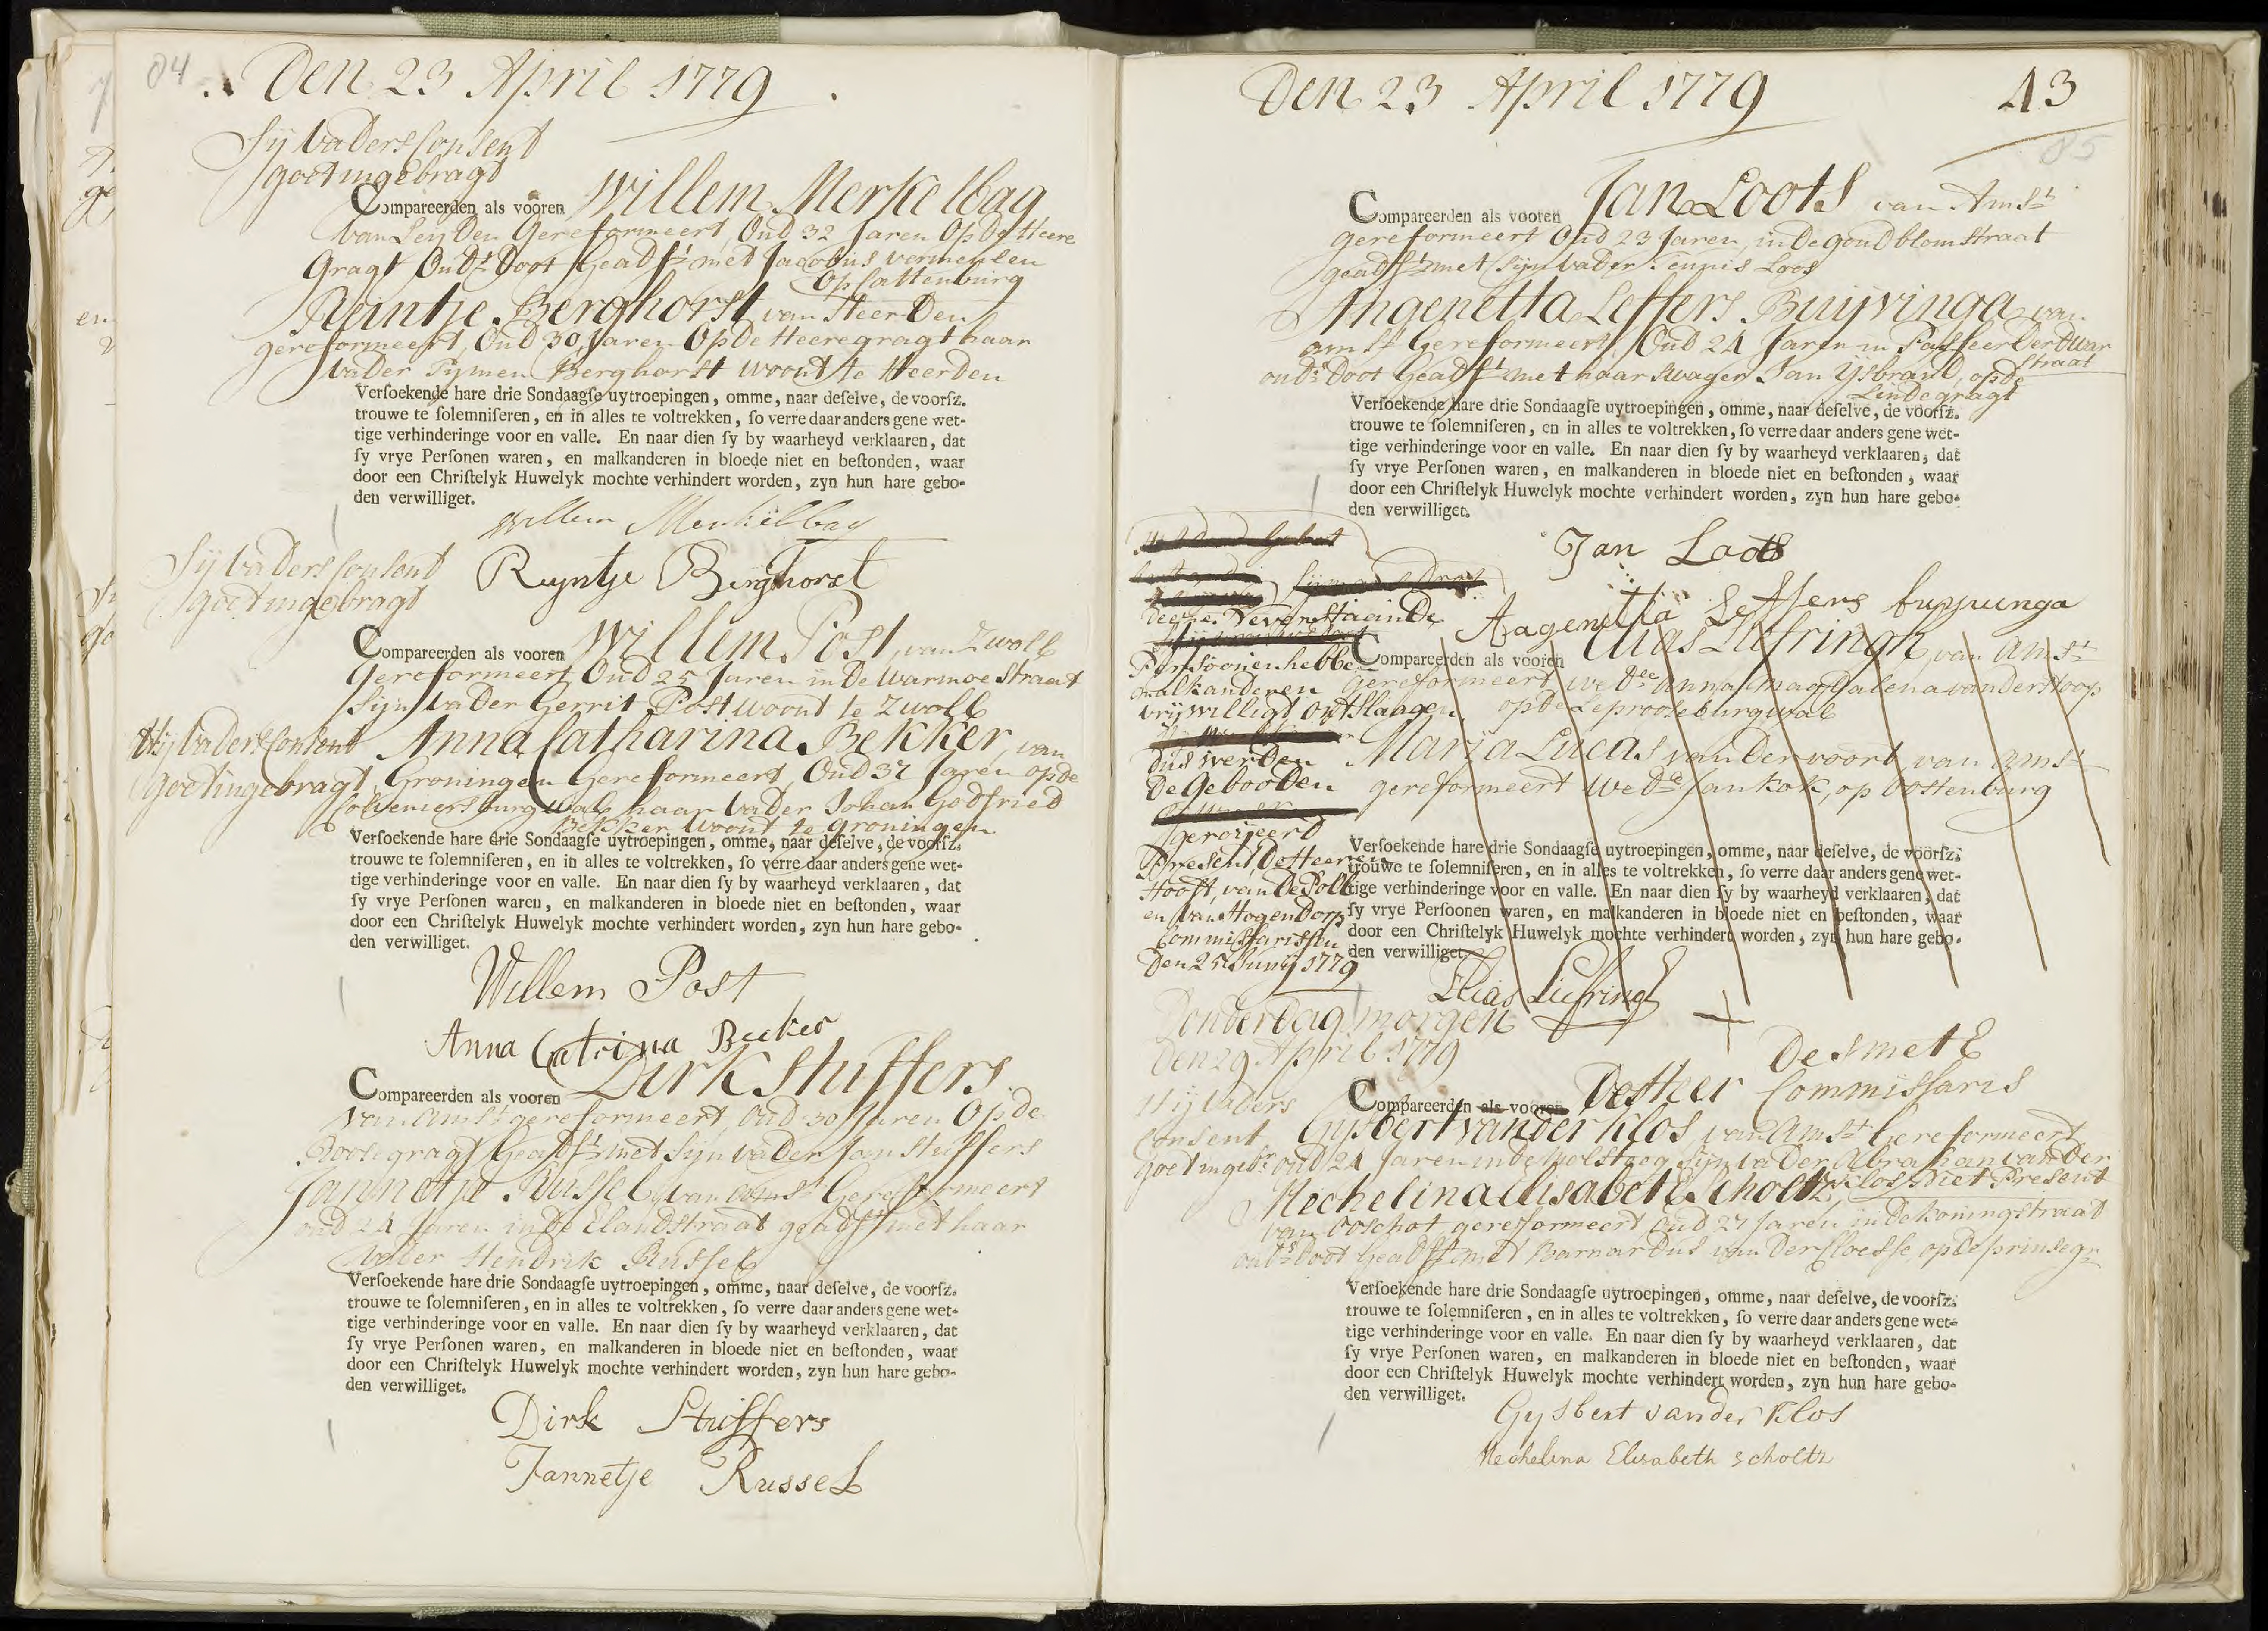 84
Den 23 April 1779
Sij vaders Consent
goet ingebragt
Compareerden als vooren Willem Merkelbag
van Leijden Gereformeert, Oud 32 Jaren Op de Heere
Gragt Oud.s Doot Geadst. met Jacobus vermeulen
Op Cattenburg
Reintje Berghorst van Heerden
gereformeert, Oud 30 Jaren Op de Heeregragt haar
vader Tijmen Berghorst woont te Heerden
Verſoekende hare drie Sondaagſe uytroepingen, omme, naar deſelve, de voorſz.
trouwe te ſolemniſeren, en in alles te voltrekken, ſo verre daar anders gene wet-
tige verhinderinge voor en valle. En naar dien ſy by waarheyd verklaaren, dat
ſy vrye Perſonen waren, en malkanderen in bloede niet en beſtonden, waar
door een Chriſtelyk Huwelyk mochte verhindert worden, zyn hun hare gebo-
den verwilliget.
Willem Merkelbag
Reyntje Berghorst
Sij vaders Consent
goet ingebragt
Compareerden als vooren Willem Post, van Zwoll
Gereformeert Oud 25 Jaren in de Warmoestraat
Sijn vader Gerrit Post woont te Zwoll
Hij vaders Consent
goet ingebragt
Anna Catharina Bekker, van
Groningen Gereformeert, Oud 37 Jaren op de
Colveniersburgwal haar vader Johan Godfried
Bekker woont te Groningen
Verſoekende hare drie Sondaagſe uytroepingen, omme, naar deſelve, de voorſz.
trouwe te ſolemniſeren, en in alles te voltrekken, ſo verre daar anders gene wet-
tige verhinderinge voor en valle. En naar dien ſy by waarheyd verklaaren, dat
ſy vrye Perſonen waren, en malkanderen in bloede niet en beſtonden, waar
door een Chriſtelyk Huwelyk mochte verhindert worden, zyn hun hare gebo-
den verwilliget.
Willem Post
Anna Catrina Becker
Compareerden als vooren Dirk Stuffers
van Amst. gereformeert, Oud 30 Jaren Op de
Roosegragt Geadst. met Sijn vader Jan Stuffers
Jannetje Russel, van Amst. Gereformeert
oud 24 Jaren in de Elandstraat geadst. met haar
vader Hendrik Russel
Verſoekende hare drie Sondaagſe uytroepingen, omme, naar deſelve, de voorſz.
trouwe te ſolemniſeren, en in alles te voltrekken, ſo verre daar anders gene wet-
tige verhinderinge voor en valle. En naar dien ſy by waarheyd verklaaren, dat
ſy vrye Perſonen waren, en malkanderen in bloede niet en beſtonden, waar
door een Chriſtelyk Huwelyk mochte verhindert worden, zyn hun hare gebo-
den verwilliget.
Dirk Stuffers
Jannetje Russel
Den 23 April 1779
43
85
Compareerden als vooren Jan Loots van Amst.
gereformeert Oud 23 Jaren, in de goudblomstraat
geadst. met Sijn vader Teunis Loos
Angenetta Leffers Buijvinga van
Amst. Gereformeert, Oud 24 Jaren in Passeerderdwar
straat
oud.s Doot Geadst. met haar swager Jan Ysbrand, op de
Lindegragt
Verſoekende hare drie Sondaagſe uytroepingen, omme, naar deſelve, de voorſz.
trouwe te ſolemniſeren, en in alles te voltrekken, ſo verre daar anders gene wet-
tige verhinderinge voor en valle. En naar dien ſy by waarheyd verklaaren, dat
ſy vrye Perſonen waren, en malkanderen in bloede niet en beſtonden, waar
door een Chriſtelyk Huwelyk mochte verhindert worden, zyn hun hare gebo-
den verwilliget.
Jan Loots
Aagenitta Leffers buyvinga
Deese Nevenstaande
Persoonen hebbe
malkanderen
vrijwilligt ontslaagen,
dus werden
De Gebooden
geroijeerd
Present, De Heeren
Hooft, van de Poll
en van Hogendorp
Commissarissen
Den 25 Junij 1779
Compareerden als vooren Elias Liefringh, van Amst.
gereformeert wed.ee Anna Magdalena van der Stoop
op de Leprooseburgwal
Marija Lucas van der voort van Amst.
gereformeert wed.e Jan Kok, op Oostenburg
Verſoekende hare drie Sondaagſe uytroepingen, omme, naar deſelve, de voorſz.
trouwe te ſolemniſeren, en in alles te voltrekken, ſo verre daar anders gene wet-
tige verhinderinge voor en valle. En naar dien ſy by waarheyd verklaaren, dat
ſy vrye Perſoonen waren, en malkanderen in bloede niet en beſtonden, waar
door een Chriſtelyk Huwelyk mochte verhindert worden, zyn hun hare gebo-
den verwilliget.
Elias Liefringh
Donderdag morgen
Den 29 April 1779
Hij vaders
Consent
goet ingebr.
De Smeth
Compareerden als vooren De Heer Commissaris
Gijsbert van der Klos, van Amst. Gereformeert
oud 24 Jaren in de Molsteeg Sijn vader Abraham van der
Klos, Niet Present
Mechelina Elisabet Scholtz
van Ooschot gereformeert Oud 27 Jaren in de koningstraat
oud.s Doot Geadst. met Barnardus van der Cloesse, op de prinsegr.
Verſoekende hare drie Sondaagſe uytroepingen, omme, naar deſelve, de voorſz.
trouwe te ſolemniſeren, en in alles te voltrekken, ſo verre daar anders gene wet-
tige verhinderinge voor en valle. En naar dien ſy by waarheyd verklaaren, dat
ſy vrye Perſonen waren, en malkanderen in bloede niet en beſtonden, waar
door een Chriſtelyk Huwelyk mochte verhindert worden, zyn hun hare gebo-
den verwilliget.
Gysbert van der Klos
Mechelina Elisabeth Scholtz